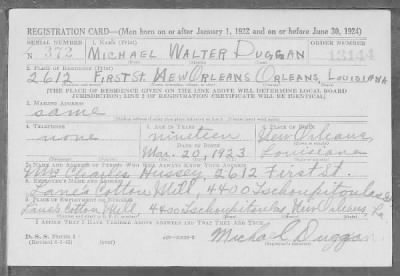 REGISTRATION CARD—(Men born on or after January 1, 1922 and on or before June 30, 1924)
SERIAL NUMBER 1. NAME (Print) ORDER NUMBER
N 372 MICHAEL WALTER DUGGAN 13144
2. PLACE OF RESIDENCE (Print)
2612 FIRST ST. NEW ORLEANS ORLEANS, LOUISIANA
[THE PLACE OF RESIDENCE GIVEN ON THE LINE ABOVE WILL DETERMINE LOCAL BOARD
JURISDICTION; LINE 2 OF REGISTRATION CERTIFICATE WILL BE IDENTICAL]
3. MAILING ADDRESS
same
4. TELEPHONE 5. AGE IN YEARS 6. PLACE OF BIRTH
none nineteen New Orleans,
DATE OF BIRTH
Mar. 20, 1923 Louisiana
7. NAME AND ADDRESS OF PERSON WHO WILL ALWAYS KNOW YOUR ADDRESS
Mrs Charles Hussey, 2612 First St.
8. EMPLOYER'S NAME AND ADDRESS
Lane's Cotton Mill, 4400 Tschoupitoulas St
9. PLACE OF EMPLOYMENT OR BUSINESS
Lane's Cotton Mill, 4400 Tschoupitoulas, New Orleans, La
I AFFIRM THAT I HAVE VERIFIED ABOVE ANSWERS AND THAT THEY ARE TRUE.
D. S. S. Form 1
Michael Duggan